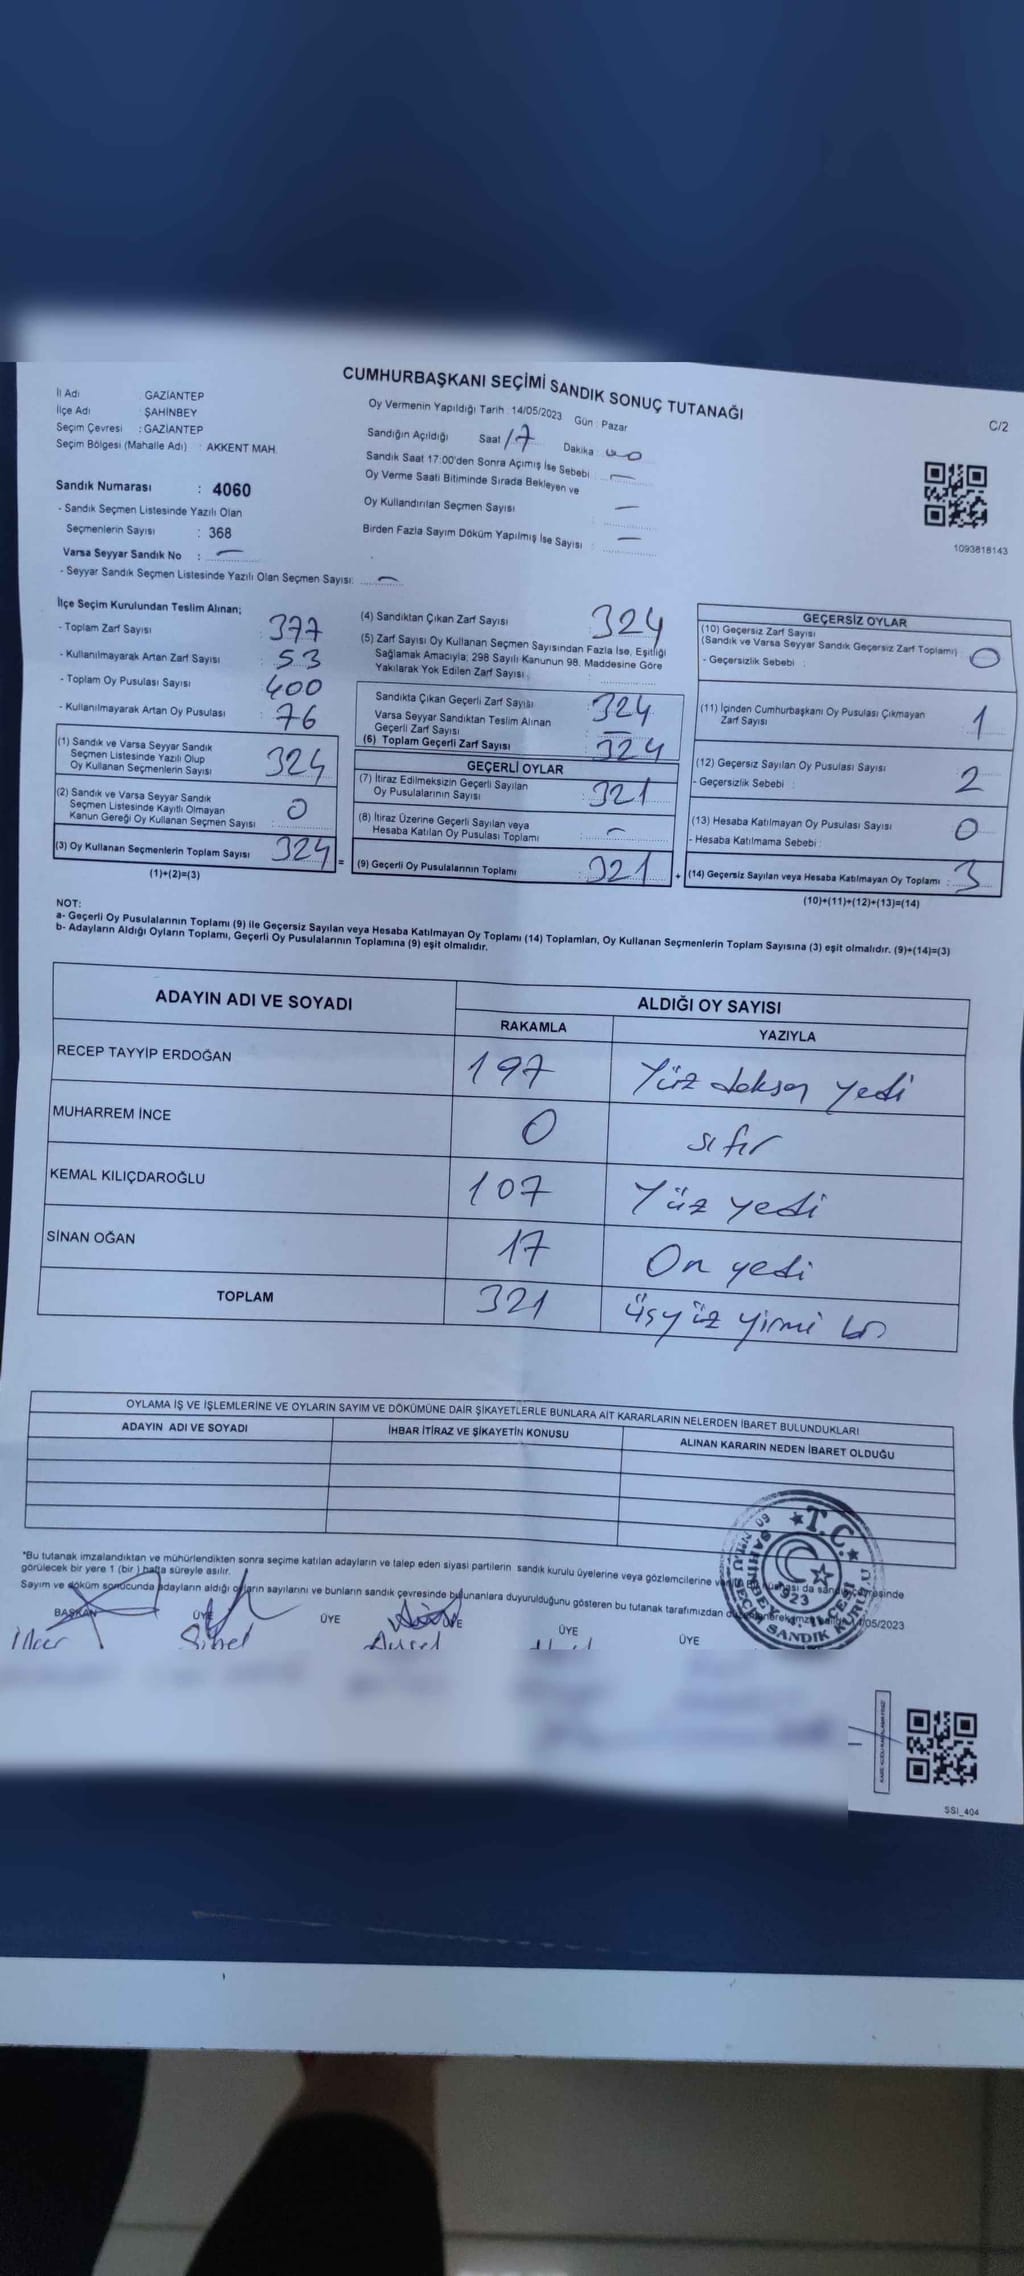 CUMHURBAŞKANI SEÇİMİ SANDIK SONUÇ TUTANAĞI
C/2
İl Adı GAZİANTEP
İlçe Adı : ŞAHİNBEY
Seçim Çevresi : GAZİANTEP
Seçim Bölgesi (Mahalle Adı) : AKKENT MAH.
Sandık Numarası : 4060
- Sandık Seçmen Listesinde Yazılı Olan
Seçmenlerin Sayısı : 368
Varsa Seyyar Sandık No : —
- Seyyar Sandık Seçmen Listesinde Yazılı Olan Seçmen Sayısı: —
Oy Vermenin Yapıldığı Tarih : 14/05/2023 Gün : Pazar
Sandığın Açıldığı Saat 17 Dakika 00
Sandık Saat 17:00'den Sonra Açımış İse Sebebi : —
Oy Verme Saati Bitiminde Sırada Bekleyen ve
Oy Kullandırılan Seçmen Sayısı : —
Birden Fazla Sayım Döküm Yapılmış İse Sayısı : —
1093818143
İlçe Seçim Kurulundan Teslim Alınan;
- Toplam Zarf Sayısı : 377
- Kullanılmayarak Artan Zarf Sayısı : 53
- Toplam Oy Pusulası Sayısı : 400
- Kullanılmayarak Artan Oy Pusulası : 76
(1) Sandık ve Varsa Seyyar Sandık
Seçmen Listesinde Yazılı Olup
Oy Kullanan Seçmenlerin Sayısı : 324
(2) Sandık ve Varsa Seyyar Sandık
Seçmen Listesinde Kayıtlı Olmayan
Kanun Gereği Oy Kullanan Seçmen Sayısı : 0
(3) Oy Kullanan Seçmenlerin Toplam Sayısı : 324 =
(1)+(2)=(3)
(4) Sandıktan Çıkan Zarf Sayısı 324
(5) Zarf Sayısı Oy Kullanan Seçmen Sayısından Fazla İse, Eşitliği
Sağlamak Amacıyla; 298 Sayılı Kanunun 98. Maddesine Göre
Yakılarak Yok Edilen Zarf Sayısı :
Sandıkta Çıkan Geçerli Zarf Sayısı : 324
Varsa Seyyar Sandıktan Teslim Alınan
Geçerli Zarf Sayısı : —
(6) Toplam Geçerli Zarf Sayısı : 324
GEÇERLİ OYLAR
(7) İtiraz Edilmeksizin Geçerli Sayılan
Oy Pusulalarının Sayısı : 321
(8) İtiraz Üzerine Geçerli Sayılan veya
Hesaba Katılan Oy Pusulası Toplamı : —
(9) Geçerli Oy Pusulalarının Toplamı : 321 +
GEÇERSİZ OYLAR
(10) Geçersiz Zarf Sayısı
(Sandık ve Varsa Seyyar Sandık Geçersiz Zarf Toplamı) : 0
- Geçersizlik Sebebi :
(11) İçinden Cumhurbaşkanı Oy Pusulası Çıkmayan
Zarf Sayısı : 1
(12) Geçersiz Sayılan Oy Pusulası Sayısı : 2
- Geçersizlik Sebebi :
(13) Hesaba Katılmayan Oy Pusulası Sayısı : 0
- Hesaba Katılmama Sebebi :
(14) Geçersiz Sayılan veya Hesaba Katılmayan Oy Toplamı : 3
(10)+(11)+(12)+(13)=(14)
NOT:
a- Geçerli Oy Pusulalarının Toplamı (9) ile Geçersiz Sayılan veya Hesaba Katılmayan Oy Toplamı (14) Toplamları, Oy Kullanan Seçmenlerin Toplam Sayısına (3) eşit olmalıdır. (9)+(14)=(3)
b- Adayların Aldığı Oyların Toplamı, Geçerli Oy Pusulalarının Toplamına (9) eşit olmalıdır.
ADAYIN ADI VE SOYADI ALDIĞI OY SAYISI
RAKAMLA YAZIYLA
RECEP TAYYİP ERDOĞAN 197 Yüz doksan yedi
MUHARREM İNCE 0 sıfır
KEMAL KILIÇDAROĞLU 107 Yüz yedi
SİNAN OĞAN 17 On yedi
TOPLAM 321 üçyüz yirmi bir
OYLAMA İŞ VE İŞLEMLERİNE VE OYLARIN SAYIM VE DÖKÜMÜNE DAİR ŞİKAYETLERLE BUNLARA AİT KARARLARIN NELERDEN İBARET BULUNDUKLARI
ADAYIN ADI VE SOYADI İHBAR İTİRAZ VE ŞİKAYETİN KONUSU ALINAN KARARIN NEDEN İBARET OLDUĞU
*Bu tutanak imzalandıktan ve mühürlendikten sonra seçime katılan adayların ve talep eden siyasi partilerin sandık kurulu üyelerine veya gözlemcilerine da sandık çevresinde
görülecek bir yere 1 (bir ) hafta süreyle asılır.
Sayım ve döküm sonucunda adayların aldığı oyların sayılarını ve bunların sandık çevresinde bulunanlara duyurulduğunu gösteren bu tutanak tarafımızdan 14/05/2023
BAŞKAN ÜYE ÜYE ÜYE ÜYE ÜYE
İlker Sibel Aysel
T.C. ŞAHİNBEY İLÇESİ SANDIK KURULU 1923
SSI_404